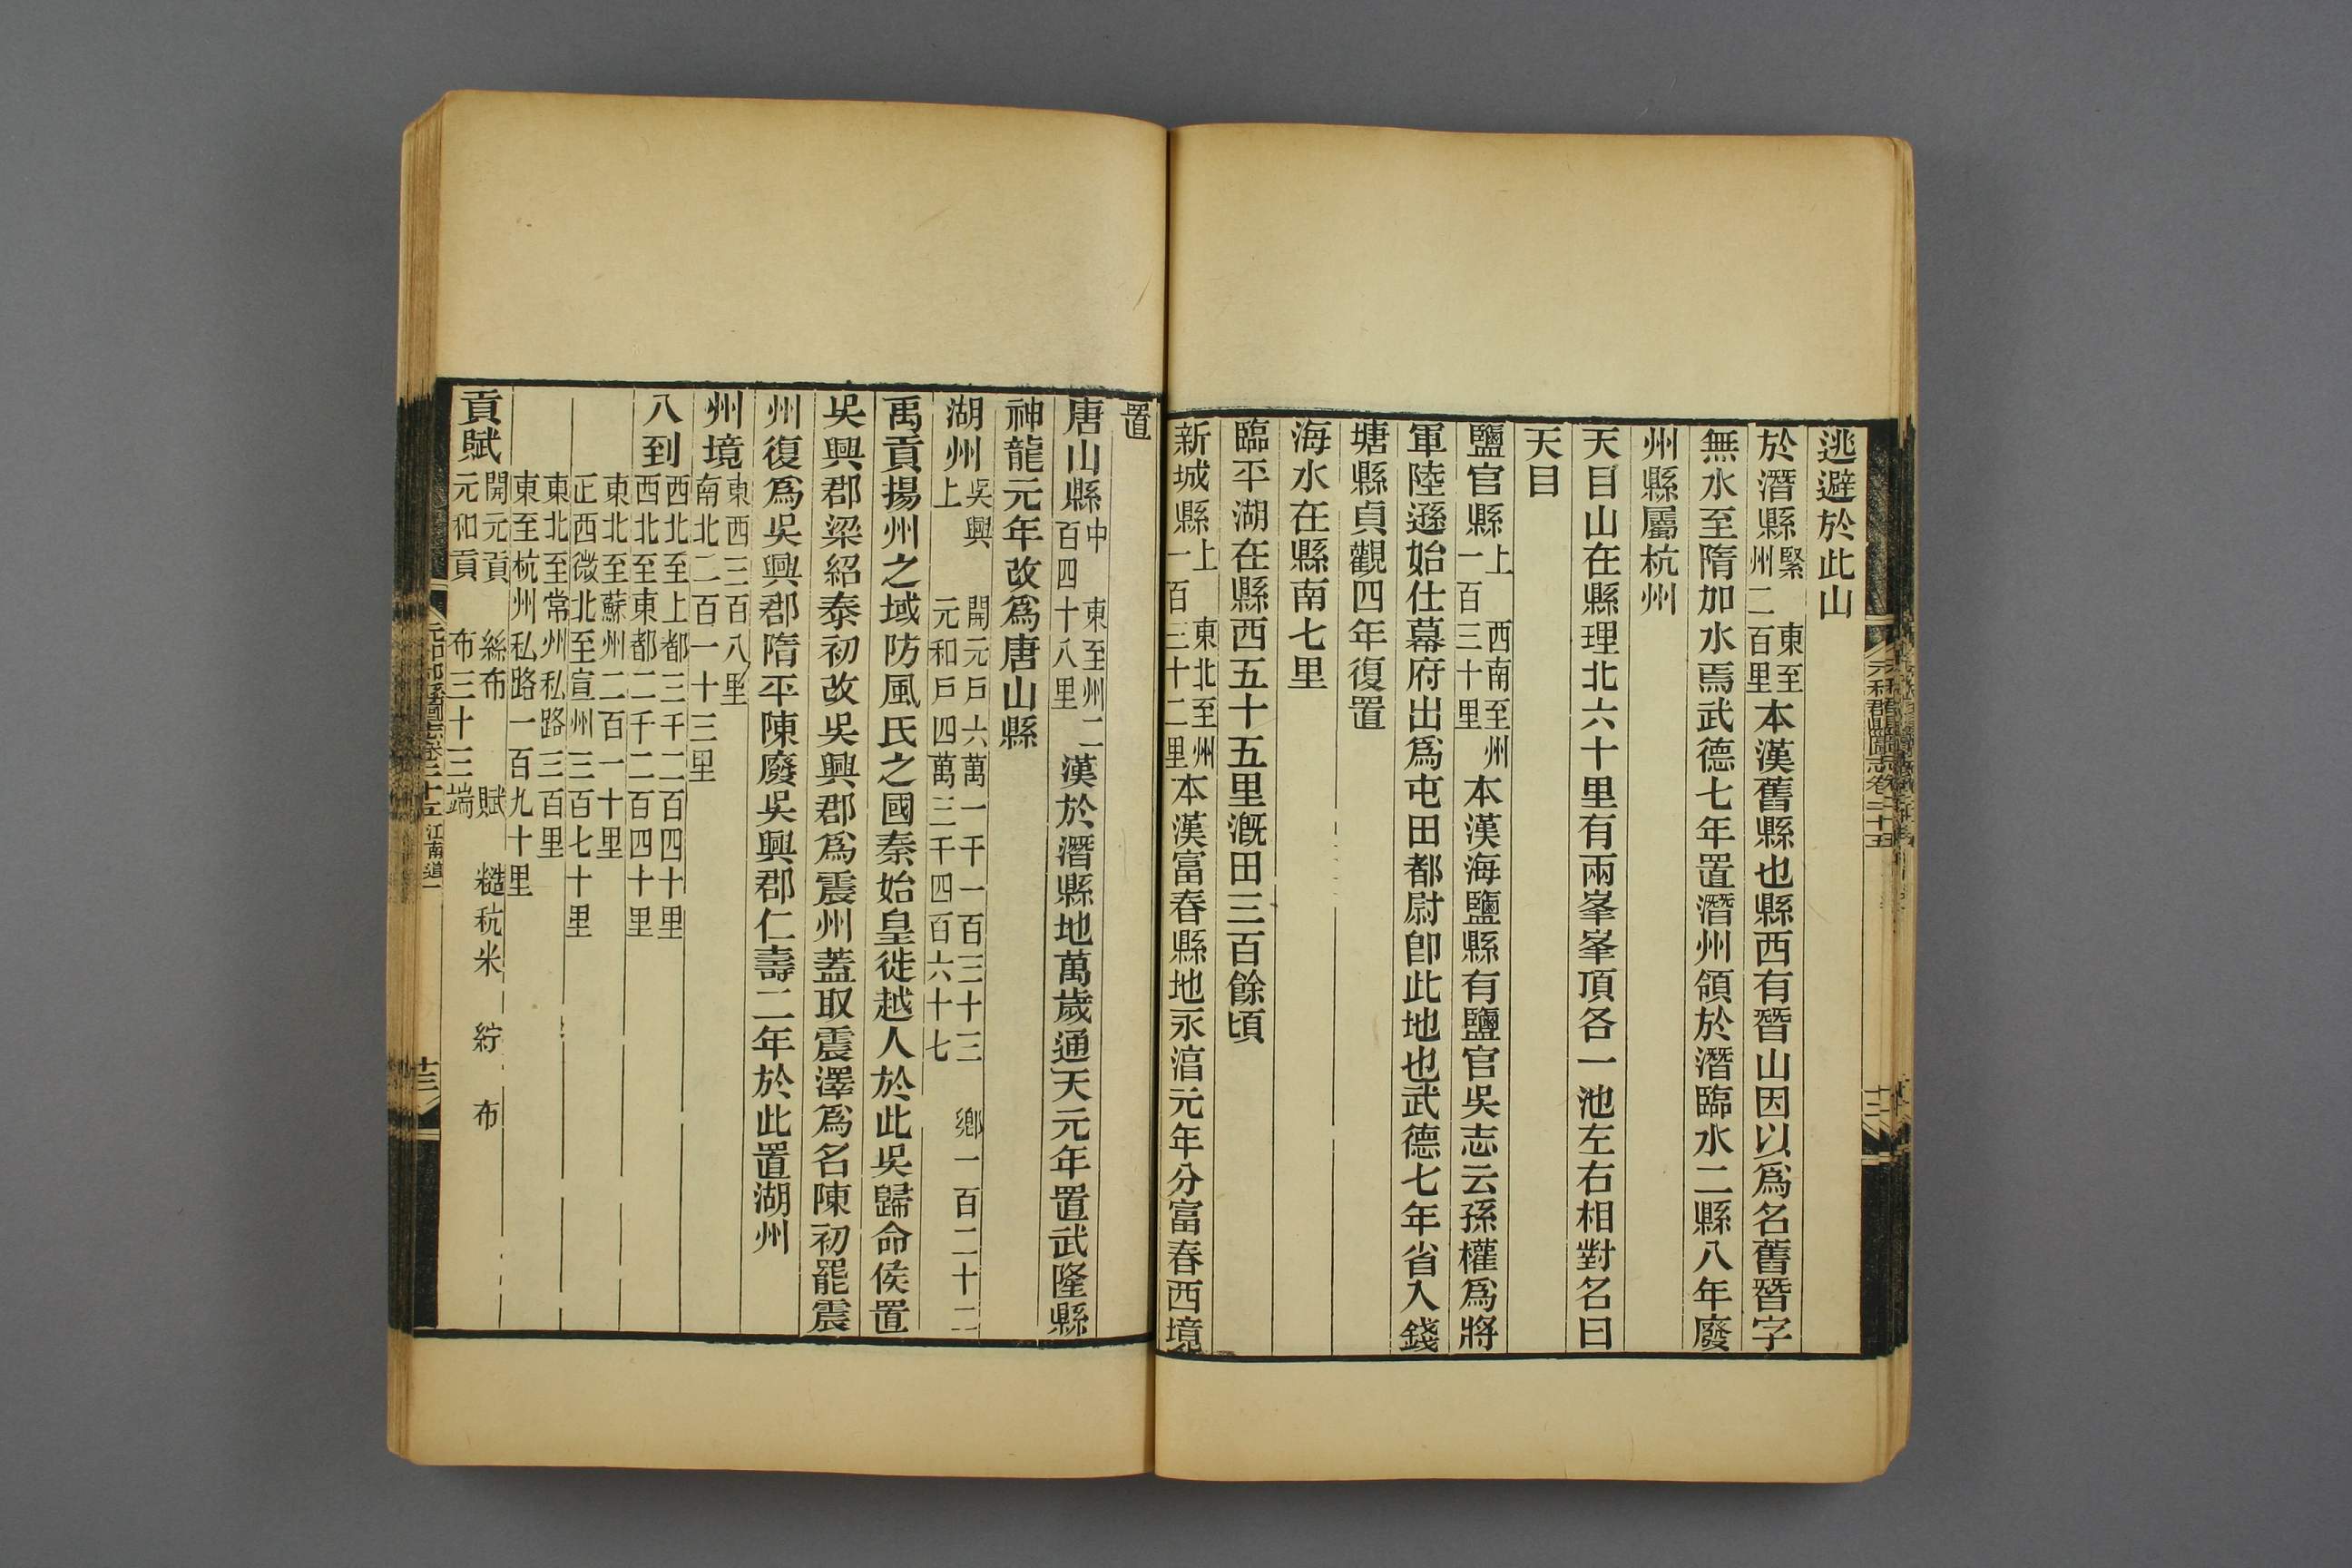 逃避於此山
於潛縣緊　東至州二百里本漢舊縣也縣西有朁山因以爲名舊朁字
無水至隋加水焉武德七年置潛州領於潛臨水二縣八年廢
州縣屬杭州
天目山在縣理北六十里有兩峯峯頂各一池左右相對名曰
天目
鹽官縣上　西南至州一百三十里本漢海鹽縣有鹽官吳志云孫權爲將
軍陸遜始仕幕府出爲屯田都尉卽此地也武德七年省入錢
塘縣貞觀四年復置
海水在縣南七里
臨平湖在縣西五十五里溉田三百餘頃
新城縣上　東北至州一百三十二里本漢富春縣地永淳元年分富春西境
置
唐山縣中　東至州二百四十八里漢於潛縣地萬歲通天元年置武隆縣
神龍元年改爲唐山縣
湖州吳興上　開元戶六萬一千一百三十三　鄉一百二十二
元和戶四萬三千四百六十七
禹貢揚州之域防風氏之國秦始皇徙越人於此吳歸命侯置
吳興郡梁紹泰初改吳興郡爲震州蓋取震澤爲名陳初罷震
州復爲吳興郡隋平陳廢吳興郡仁壽二年於此置湖州
州境東西三百八里
南北二百一十三里
八到西北至上都三千二百四十里
西北至東都二千二百四十里
東北至蘇州二百一十里
正西微北至宣州三百七十里
東北至常州私路三百里
東至杭州私路一百九十里
貢賦開元貢　絲布　賦　糙秔米　紵　布
元和貢　布三十三端
元和郡縣圖志卷二十五
十二
元和郡縣圖志卷二十五　江南道一
十三